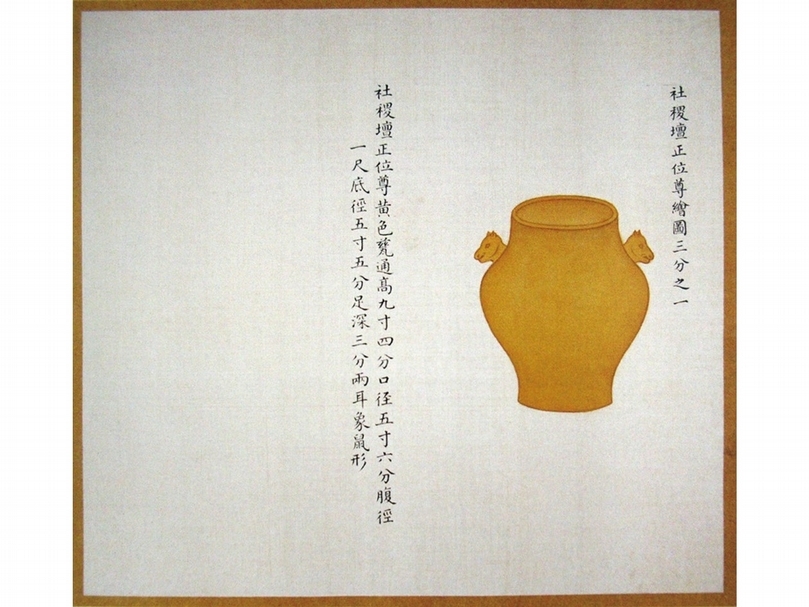 社稷壇正位尊繪圖三分之一
社稷壇正位尊黃色甆通高九寸四分口徑五寸六分腹徑
一尺底徑五寸五分足深三分兩耳象鼠形